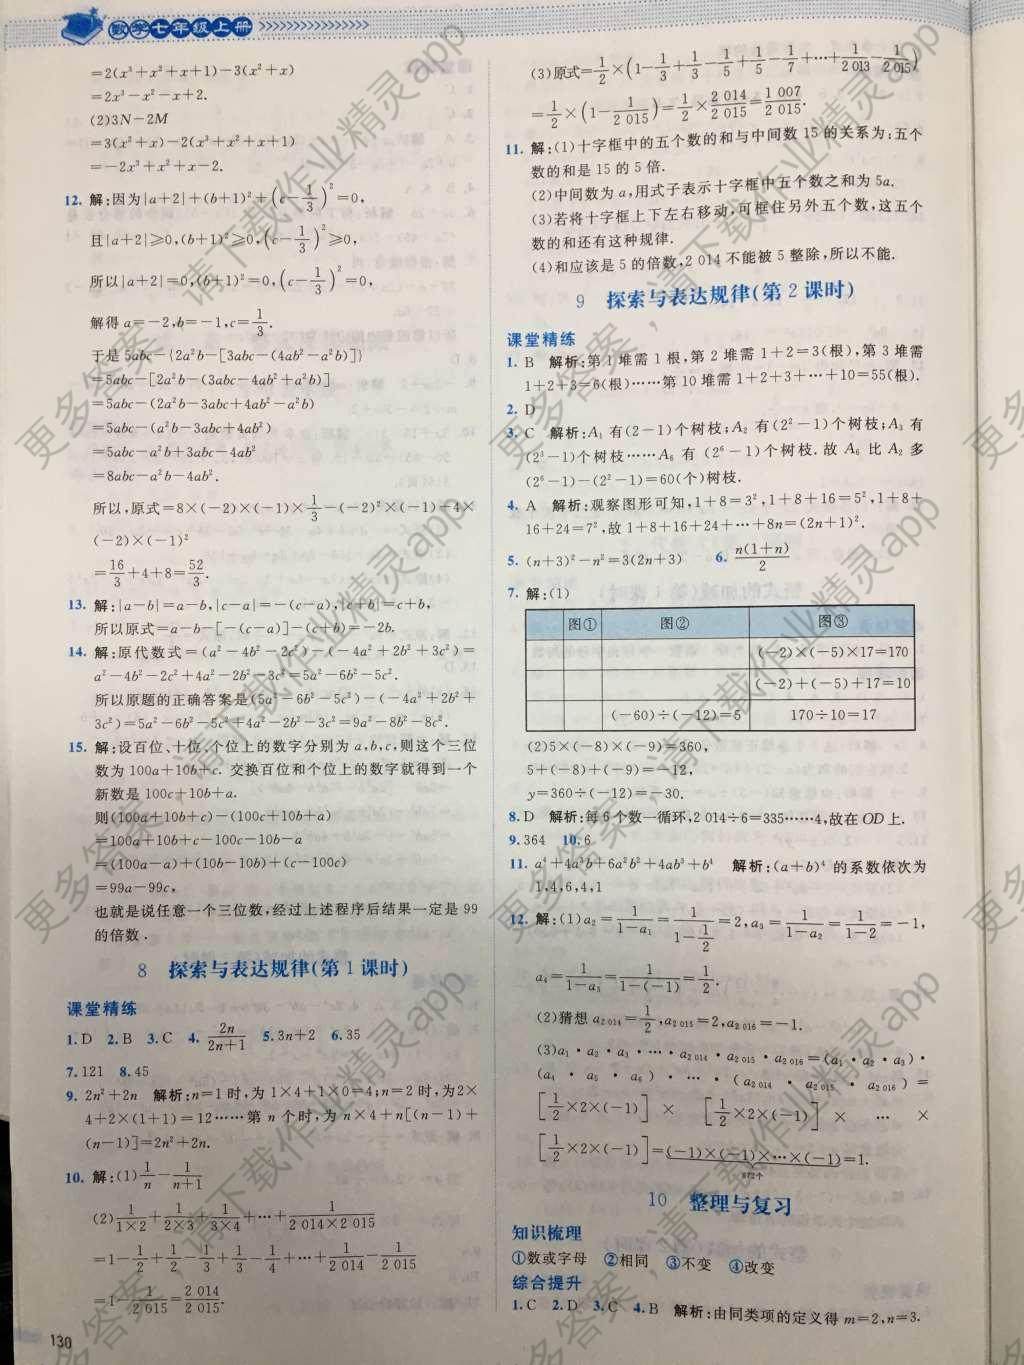 数学七年级上册
=2(x³+x²+x+1)-3(x²+x)
=2x³-x²-x+2.
(2)3N-2M
=3(x²+x)-2(x³+x²+x+1)
=-2x³+x²+x-2.
12. 解:因为|a+2|+(b+1)²+(c-1/3)²=0,
且|a+2|≥0,(b+1)²≥0,(c-1/3)²≥0,
所以|a+2|=0,(b+1)²=0,(c-1/3)²=0,
解得 a=-2,b=-1,c=1/3.
于是 5abc-{2a²b-[3abc-(4ab²-a²b)]}
=5abc-[2a²b-(3abc-4ab²+a²b)]
=5abc-(2a²b-3abc+4ab²-a²b)
=5abc-(a²b-3abc+4ab²)
=5abc-a²b+3abc-4ab²
=8abc-a²b-4ab².
所以,原式=8×(-2)×(-1)×1/3-(-2)²×(-1)-4×
(-2)×(-1)²
=16/3+4+8=52/3.
13. 解:|a-b|=a-b,|c-a|=-(c-a),|c+b|=c+b,
所以原式=a-b-[-(c-a)]-(c+b)=-2b.
14. 解:原代数式=(a²-4b²-2c²)-(-4a²+2b²+3c²)=
a²-4b²-2c²+4a²-2b²-3c²=5a²-6b²-5c².
所以原题的正确答案是(5a²-6b²-5c²)-(-4a²+2b²+
3c²)=5a²-6b²-5c²+4a²-2b²-3c²=9a²-8b²-8c².
15. 解:设百位、十位、个位上的数字分别为 a,b,c,则这个三位
数为 100a+10b+c. 交换百位和个位上的数字就得到一个
新数是 100c+10b+a.
则(100a+10b+c)-(100c+10b+a)
=100a+10b+c-100c-10b-a
=(100a-a)+(10b-10b)+(c-100c)
=99a-99c,
也就是说任意一个三位数,经过上述程序后结果一定是 99
的倍数.
8 探索与表达规律(第 1 课时)
课堂精练
1. D 2. B 3. C 4. 2n/2n+1 5. 3n+2 6. 35
7. 121 8. 45
9. 2n²+2n 解析:n=1 时,为 1×4+1×0=4;n=2 时,为2×
4+2×(1+1)=12……第 n 个时,为 n×4+n[(n-1)+
(n-1)]=2n²+2n.
10. 解:(1)1/n-1/n+1
(2)1/1×2+1/2×3+1/3×4+…+1/2 014×2 015
=1-1/2+1/2-1/3+1/3-1/4+…+1/2 014-1/2 015
=1-1/2 015=2 014/2 015.
130
(3)原式=1/2×(1-1/3+1/3-1/5+1/5-1/7+…+1/2 013-1/2 015)
=1/2×(1-1/2 015)=1/2×2 014/2 015=1 007/2 015.
11. 解:(1)十字框中的五个数的和与中间数 15 的关系为:五个
数的和是 15 的 5 倍.
(2)中间数为 a,用式子表示十字框中五个数之和为 5a.
(3)若将十字框上下左右移动,可框住另外五个数,这五个
数的和还有这种规律.
(4)和应该是 5 的倍数,2 014 不能被 5 整除,所以不能.
9 探索与表达规律(第 2 课时)
课堂精练
1. B 解析:第 1 堆需 1 根,第 2 堆需 1+2=3(根),第 3 堆需
1+2+3=6(根)……第 10 堆需 1+2+3+…+10=55(根).
2. D
3. C 解析:A₁ 有(2-1)个树枝;A₂ 有(2²-1)个树枝;A₃ 有
(2³-1)个树枝……A₆ 有(2⁶-1)个树枝. 故 A₆ 比 A₂ 多
(2⁶-1)-(2²-1)=60(个)树枝.
4. A 解析:观察图形可知,1+8=3²,1+8+16=5²,1+8+
16+24=7²,故 1+8+16+24+…+8n=(2n+1)².
5. (n+3)²-n²=3(2n+3) 6. n(1+n)/2
7. 解:(1)
图① 图② 图③
(-2)×(-5)×17=170
(-2)+(-5)+17=10
(-60)÷(-12)=5 170÷10=17
(2)5×(-8)×(-9)=360,
5+(-8)+(-9)=-12,
y=360÷(-12)=-30.
8. D 解析:每 6 个数一循环,2 014÷6=335……4,故在 OD 上.
9. 364 10. 6
11. a⁴+4a³b+6a²b²+4ab³+b⁴ 解析:(a+b)⁴ 的系数依次为
1,4,6,4,1
12. 解:(1)a₂=1/1-a₁=1/1-1/2=2,a₃=1/1-a₂=1/1-2=-1,
a₄=1/1-a₃=1/1-(-1)=1/2.
(2)猜想 a₂₀₁₄=1/2,a₂₀₁₅=2,a₂₀₁₆=-1.
(3)a₁·a₂·a₃·…·a₂₀₁₄·a₂₀₁₅·a₂₀₁₆=(a₁·a₂·a₃)·
(a₄·a₅·a₆)·…·(a₂₀₁₄·a₂₀₁₅·a₂₀₁₆)=
[1/2×2×(-1)]×[1/2×2×(-1)]×…×
[1/2×2×(-1)]=(-1)×(-1)×…×(-1)=1.
672个
10 整理与复习
知识梳理
①数或字母 ②相同 ③不变 ④改变
综合提升
1. C 2. D 3. C 4. B 解析:由同类项的定义得 m=2,n=3.
更多答案,请下载作业精灵app